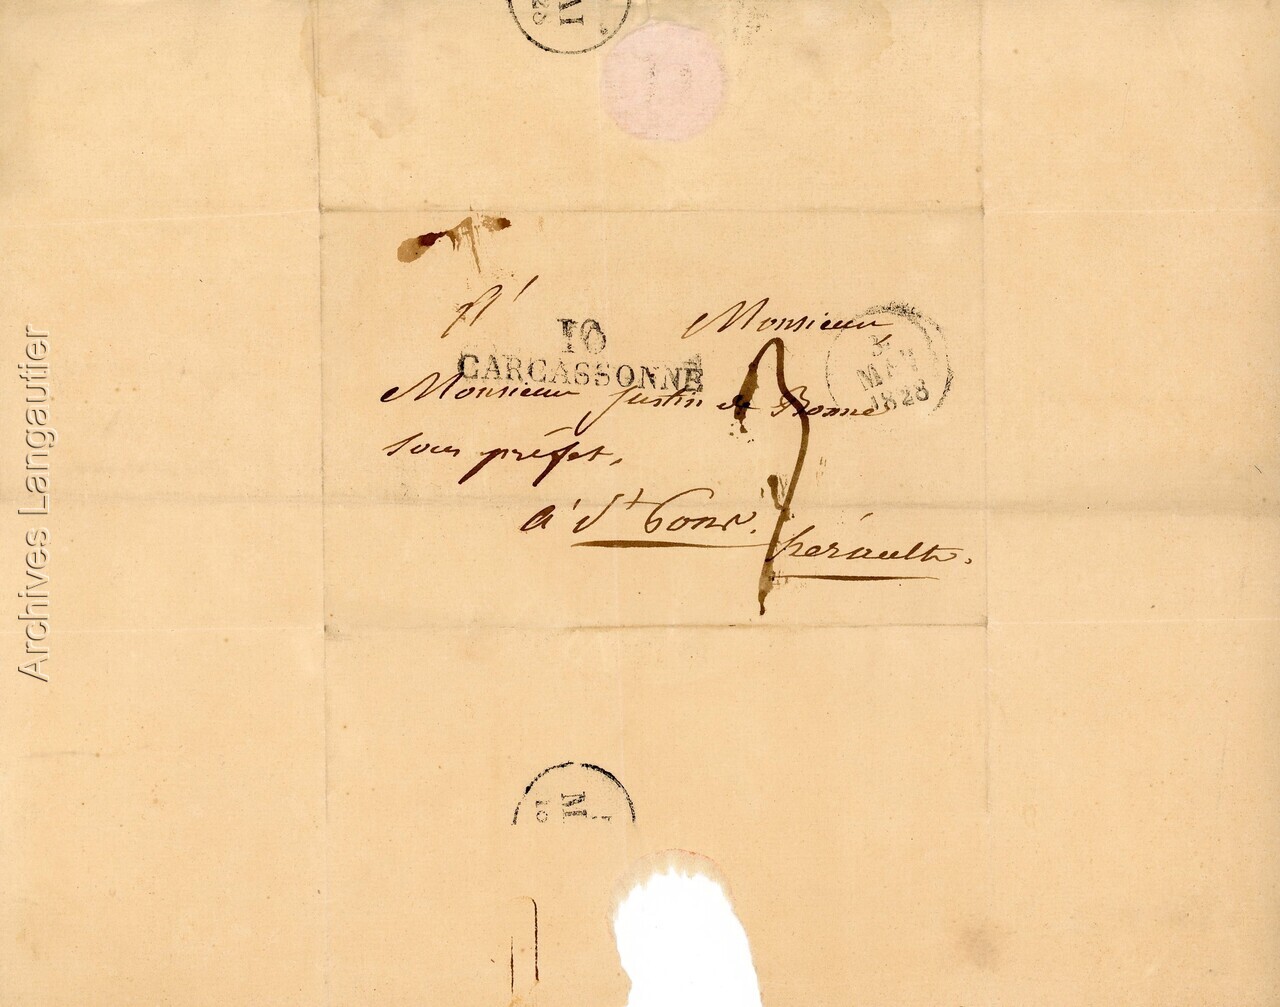 Archives Langautier
A
Monsieur
10
CARCASSONNE
MAI
1828
Monsieur Justin de Bonne
sous préfet,
à St Pons.
hérault.
M